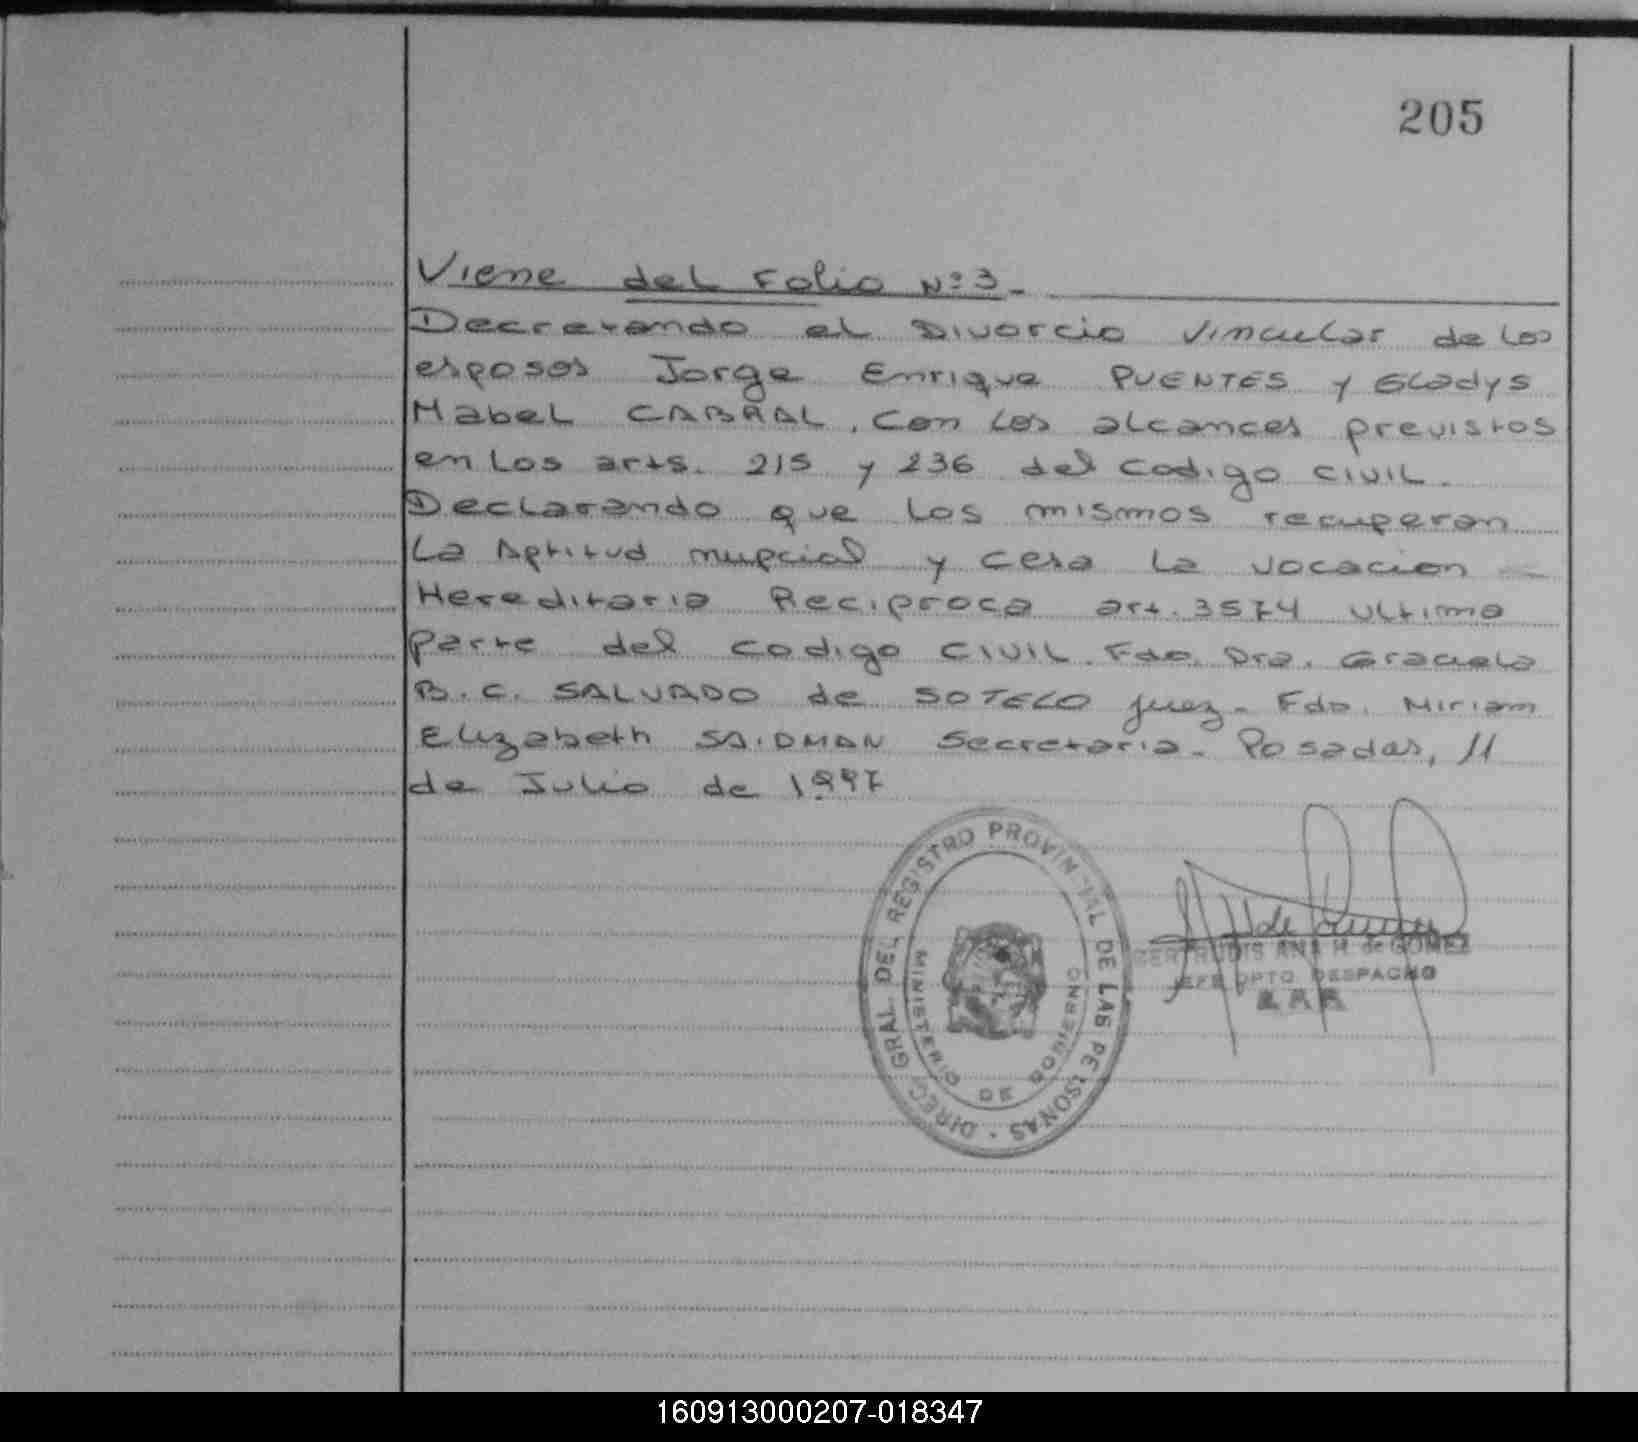 205
Viene del Folio Nº 3-
Decretando el Divorcio Vincular de los
esposos Jorge Enrique PUENTES y Gladys
Mabel CABRAL, con los alcances previstos
en los arts. 215 y 236 del codigo civil.
Declarando que los mismos recuperan
la Aptitud nupcial y cesa la vocacion
Hereditaria Reciproca art. 3574 ultima
parte del codigo civil. Fdo. Dra. Graciela
B. C. SALVADO de SOTELO juez- Fdo. Miriam
Elizabeth SAIDMAN Secretaria- Posadas, 11
de Julio de 1997
DIREC. GRAL. DEL REGISTRO PROVINCIAL DE LAS PERSONAS
MINISTERIO DE GOBIERNO
GERTRUDIS ANA H. de GOMEZ
JEFE DPTO DESPACHO
160913000207-018347